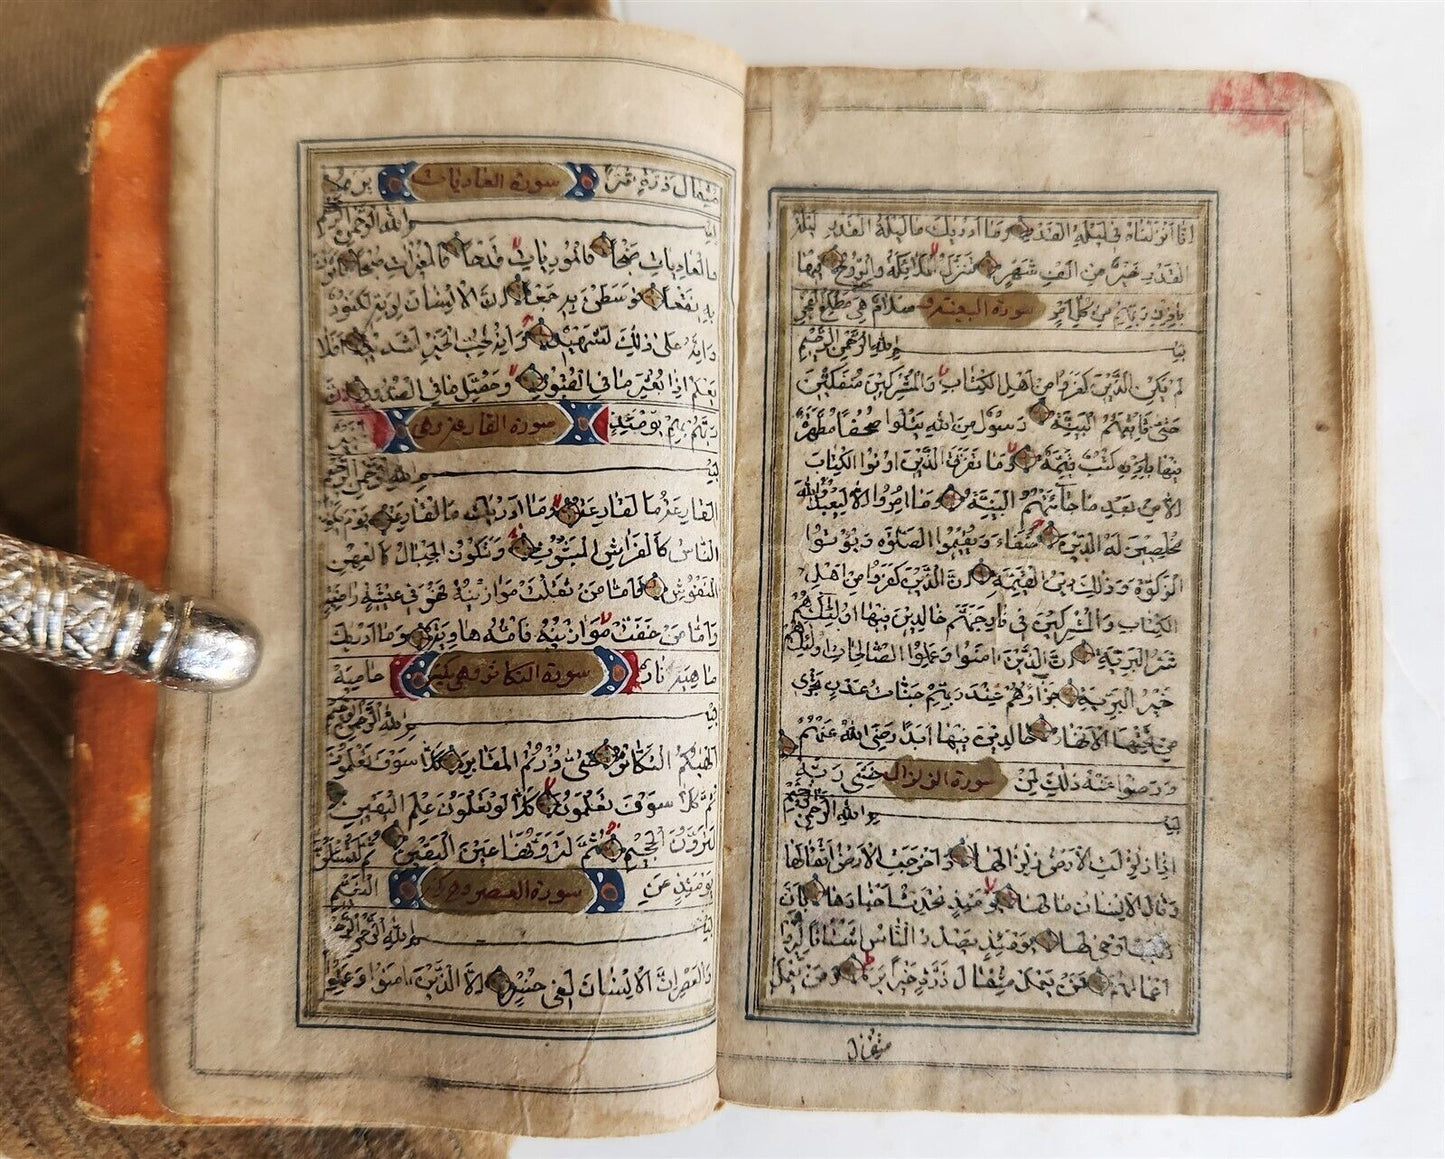 انا انزلناه في ليلة القدر وما ادريك ما ليلة القدر ليلة
القدر خير من الف شهر تنزل الملائكة والروح فيها
باذن ربهم من كل امر سلام هي مطلع الفجر سورة البينة
بسم الله الرحمن الرحيم
لم يكن الذين كفروا من اهل الكتاب والمشركين منفكين
حتى تاتيهم البينة رسول من الله يتلوا صحفا مطهرة
فيها كتب قيمة وما تفرق الذين اوتوا الكتاب
الا من بعد ما جاءتهم البينة وما امروا الا ليعبدوا الله
مخلصين له الدين حنفاء ويقيموا الصلوة ويؤتوا
الزكوة وذلك دين القيمة ان الذين كفروا من اهل
الكتاب والمشركين في نار جهنم خالدين فيها اولئك هم
شر البرية ان الذين امنوا وعملوا الصالحات اولئك هم
خير البرية جزاؤهم عند ربهم جنات عدن تجري
من تحتها الانهار خالدين فيها ابدا رضي الله عنهم
ورضوا عنه ذلك لمن خشي ربه سورة الزلزال
بسم الله الرحمن الرحيم
اذا زلزلت الارض زلزالها واخرجت الارض اثقالها
وقال الانسان ما لها يومئذ تحدث اخبارها بان
ربك اوحى لها يومئذ يصدر الناس اشتاتا ليروا
اعمالهم فمن يعمل مثقال ذرة خيرا يره ومن يعمل
مثقال
مثقال ذرة شرا يره سورة العاديات
بسم الله الرحمن الرحيم
والعاديات ضبحا فالموريات قدحا فالمغيرات صبحا فاثرن
به نقعا فوسطن به جمعا ان الانسان لربه لكنود
وانه على ذلك لشهيد وانه لحب الخير لشديد افلا
يعلم اذا بعثر ما في القبور وحصل ما في الصدور ان
ربهم بهم يومئذ لخبير سورة القارعة وهي
بسم الله الرحمن الرحيم
القارعة ما القارعة وما ادريك ما القارعة يوم يكون
الناس كالفراش المبثوث وتكون الجبال كالعهن
المنفوش فاما من ثقلت موازينه فهو في عيشة راضية
واما من خفت موازينه فامه هاوية وما ادريك
ما هيه نار حامية سورة التكاثر وهي
بسم الله الرحمن الرحيم
الهيكم التكاثر حتى زرتم المقابر كلا سوف تعلمون
ثم كلا سوف تعلمون كلا لو تعلمون علم اليقين
لترون الجحيم ثم لترونها عين اليقين ثم لتسئلن
يومئذ عن النعيم سورة العصر وهي
بسم الله الرحمن الرحيم
والعصر ان الانسان لفي خسر الا الذين امنوا وعملوا